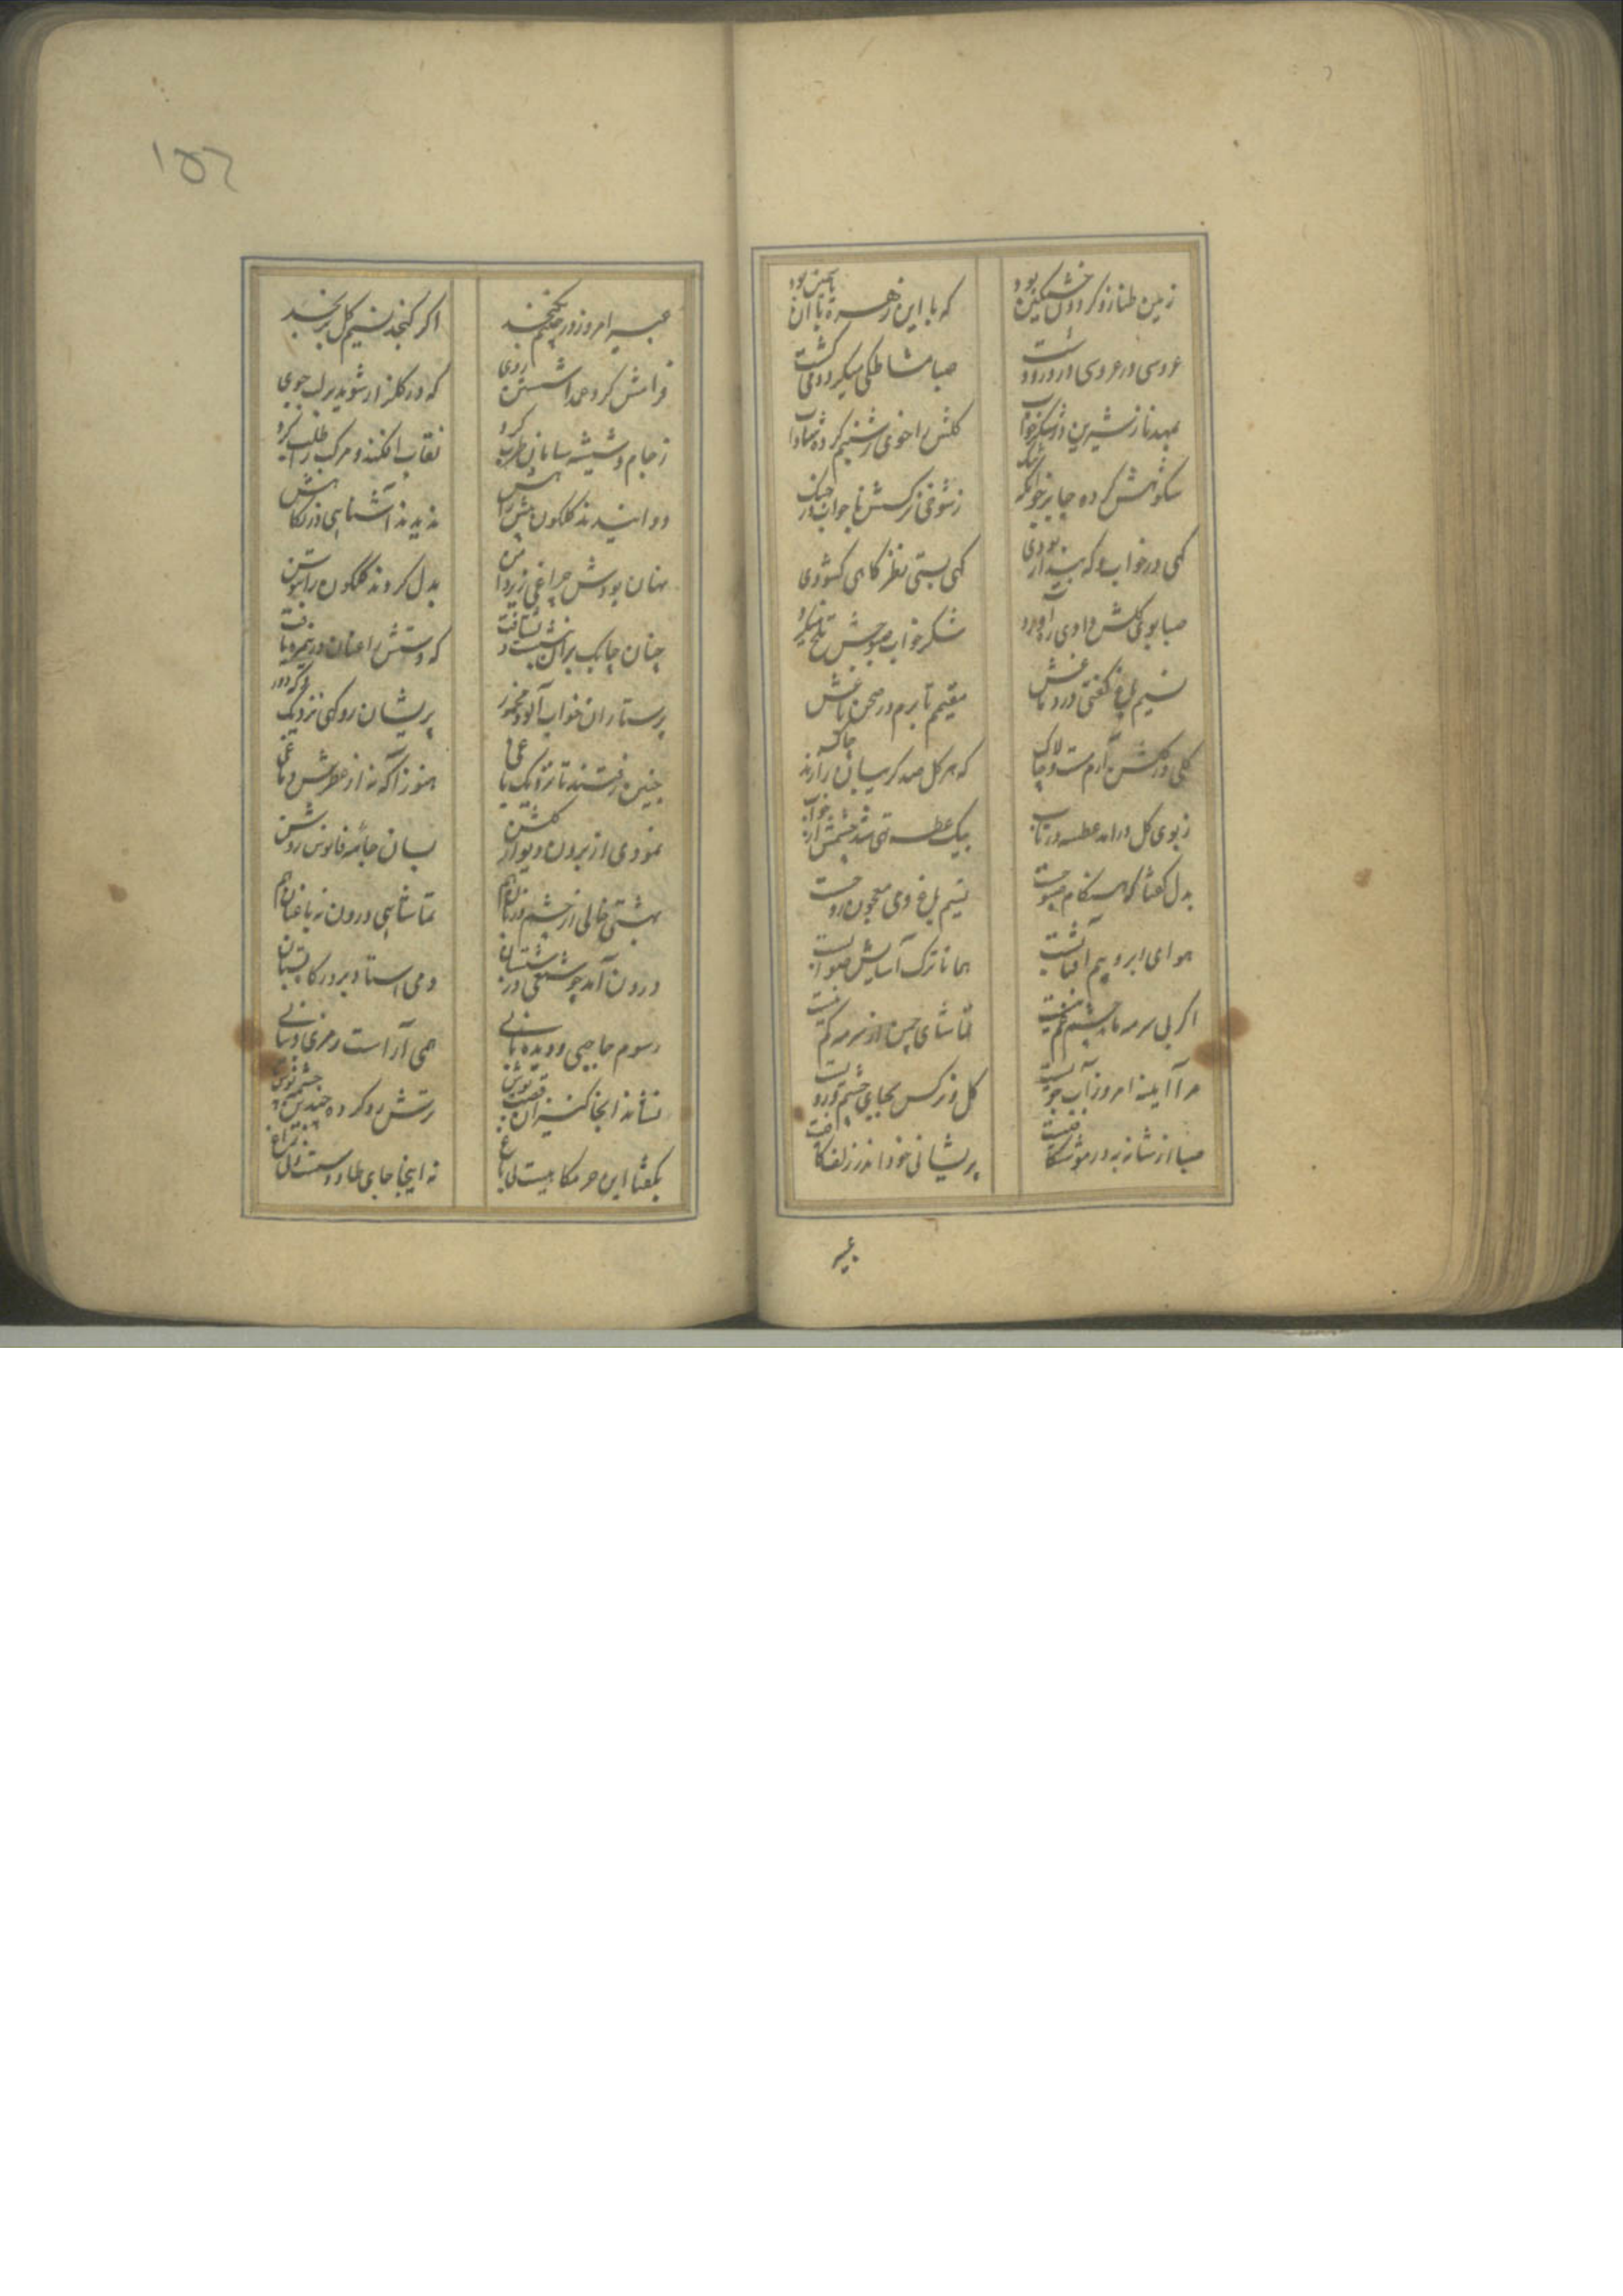 زمین طناز و کردون خشمگین بود
که با این زهره با آن همچنین بود
عروسی در عروسی در و در دشت
صبا مشاطکی میکرد و میکشت
بمهد ناز شیرین در شکر خواب
کلش را خوی ز شبنم کرده شاداب
شکوهش کرده جا بر خوابکه تنک
ز شوخی نرکسش با خواب در جنک
کهی در خواب و که بیدار بودی
کهی بستی نظر کاهی کشودی
صبا بوی کلش در وادی آورد
شکر خواب صبوحش تلخ میکرد
نسیم باغ کفتی در دماغش
مقیم تا برم در صحن باغش
کلی در کلشن آرم مست و چالاک
که هر کل صد کریبان را زند چاک
ز بوی کل درآمد عطسه در تاب
بیک عطسه تهی شد چشمش از خواب
بدل کفتا که هنکام صبوحست
نسیم باغ وی معجون روحست
هوای ابر و بیم آفتابست
همانا ترک آسایش صوابست
اکر بی سرمه ام چشمم نخفتست
تماشای چمن از سرمه کم نیست
مرا آیینه امروز آب جویست
کل و نرکس بجای چشم و رویست
صبا از شانه به در مو شکافیست
پریشانی خود اندر زلف کافیست
عبیر
۱۵۲
عبیر امروز در جیبم نکنجد
اکر کنجد نسیم کل برنجد
فرامش کرد عمدا شستن روی
که در کلزار شوید بر لب جوی
ز جام و شیشه سامان طرب کرد
نقاب افکند و مرکب را طلب کرد
دوانیدند کلکون پیش راهش
ندیدند آشنایی در نکاهش
نهان بودش چراغی زیر دامن
بدل کردند کلکون را بتوسن
چنان چابک بران بنشست و بشتافت
که دستش را عنان در نیمه ره یافت
پرستاران خواب آلود مخمور
پریشان رو کهی نزدیک و که دور
چنین رفتند تا نزدیک باغی
هنوز آکه نه از عطرش دماغی
نمودی از برون دیوار کلشن
بسان جامه فانوس روشن
بهشتی خالی از چشم دربان هم
تماشایی درون نه باغبان هم
درون آمد چو شمعی در شبستان
دمی استاد بر در کافتابان
رسوم حاجبی و دیده بانی
همی آراست رمزی و نشانی
نشاند آنجا کنیزان قصب پوش
رتش رو کرده چندین چشمه نوش
بکفتا این حرمکاهیست نی باغ
نه اینجا جای طاوسست و نی زاغ